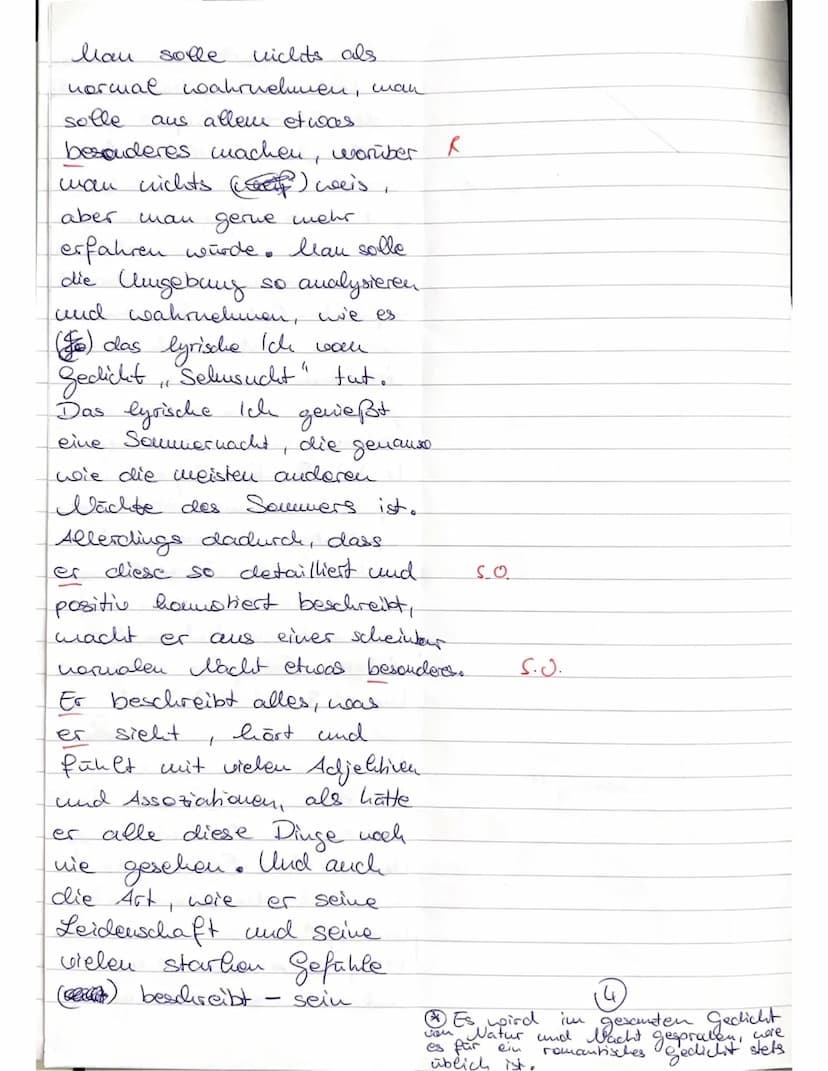 Man solle nichts als
normal wahrnehmen, man
solle aus allem etwas
besonderes machen, worüber R
man nichts () weis,
aber man gerne mehr
erfahren würde. Man solle
die Umgebung so analysieren
und wahrnehmen, wie es
() das lyrische Ich vom
Gedicht „Sehnsucht" tut.
Das lyrische Ich genießt
eine Sommernacht, die genauso
wie die meisten anderen
Nächte des Sommers ist.
Allerdings dadurch, dass
er diese so detailliert und S.O.
positiv konnotiert beschreibt,
macht er aus einer scheinbar
normalen Nacht etwas besonderes. S.O.
Er beschreibt alles, was
er sieht, hört und
fühlt mit vielen Adjektiven
und Assoziationen, als hätte
er alle diese Dinge noch
nie gesehen. Und auch
die Art, wie er seine
Leidenschaft und seine
vielen starken Gefühle
() beschreibt – sein
4
* Es wird im gesamten Gedicht
von Natur und Nacht gesprochen, wie
es für ein romantisches Gedicht stets
üblich ist.